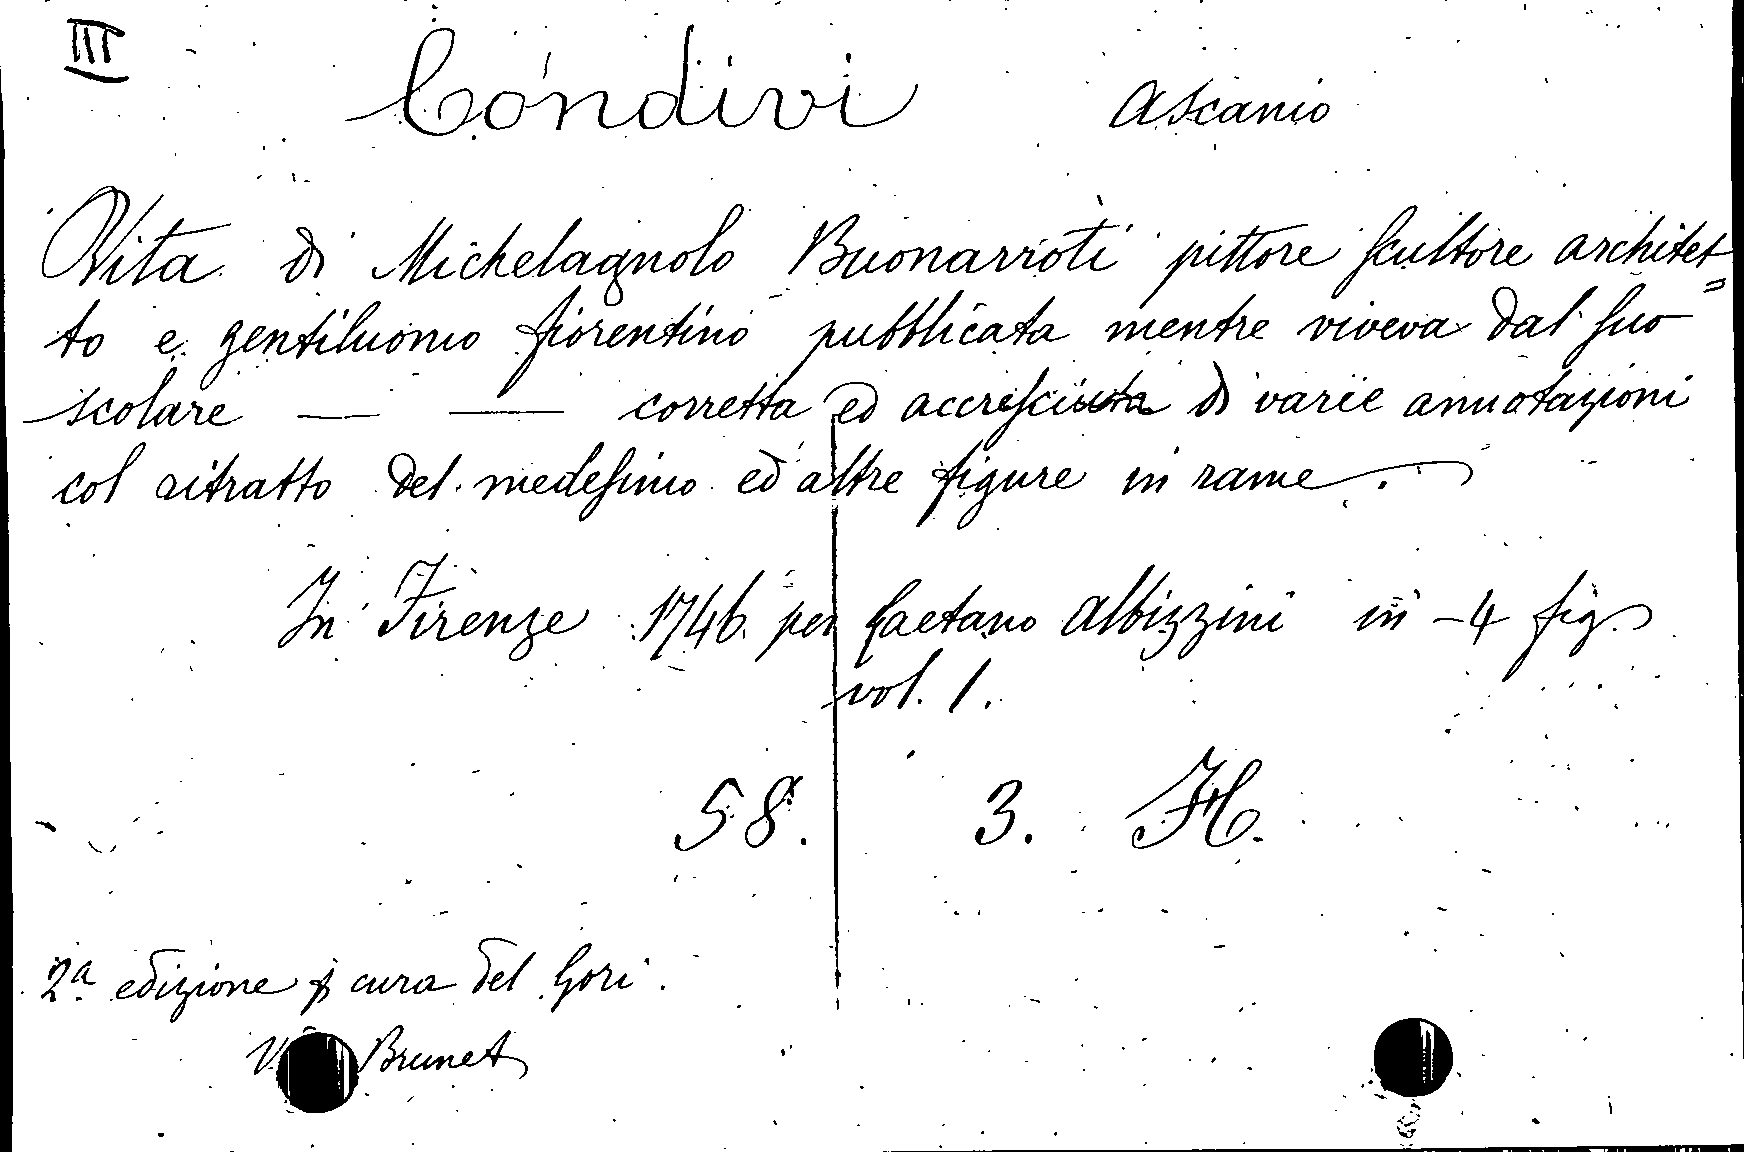 III
Condivi Ascanio
Vita di Michelagnolo Buonarroti pittore scultore architet=
to e gentiluomo fiorentino pubblicata mentre viveva dal suo
scolare — — corretta ed accresciuta di varie annotazioni
col ritratto del medesimo ed altre figure in rame.
In Firenze 1746. per Gaetano Albizzini in -4 fig.
vol. 1.
58. 3. H.
2ª edizione p cura del Gori.
Brunet